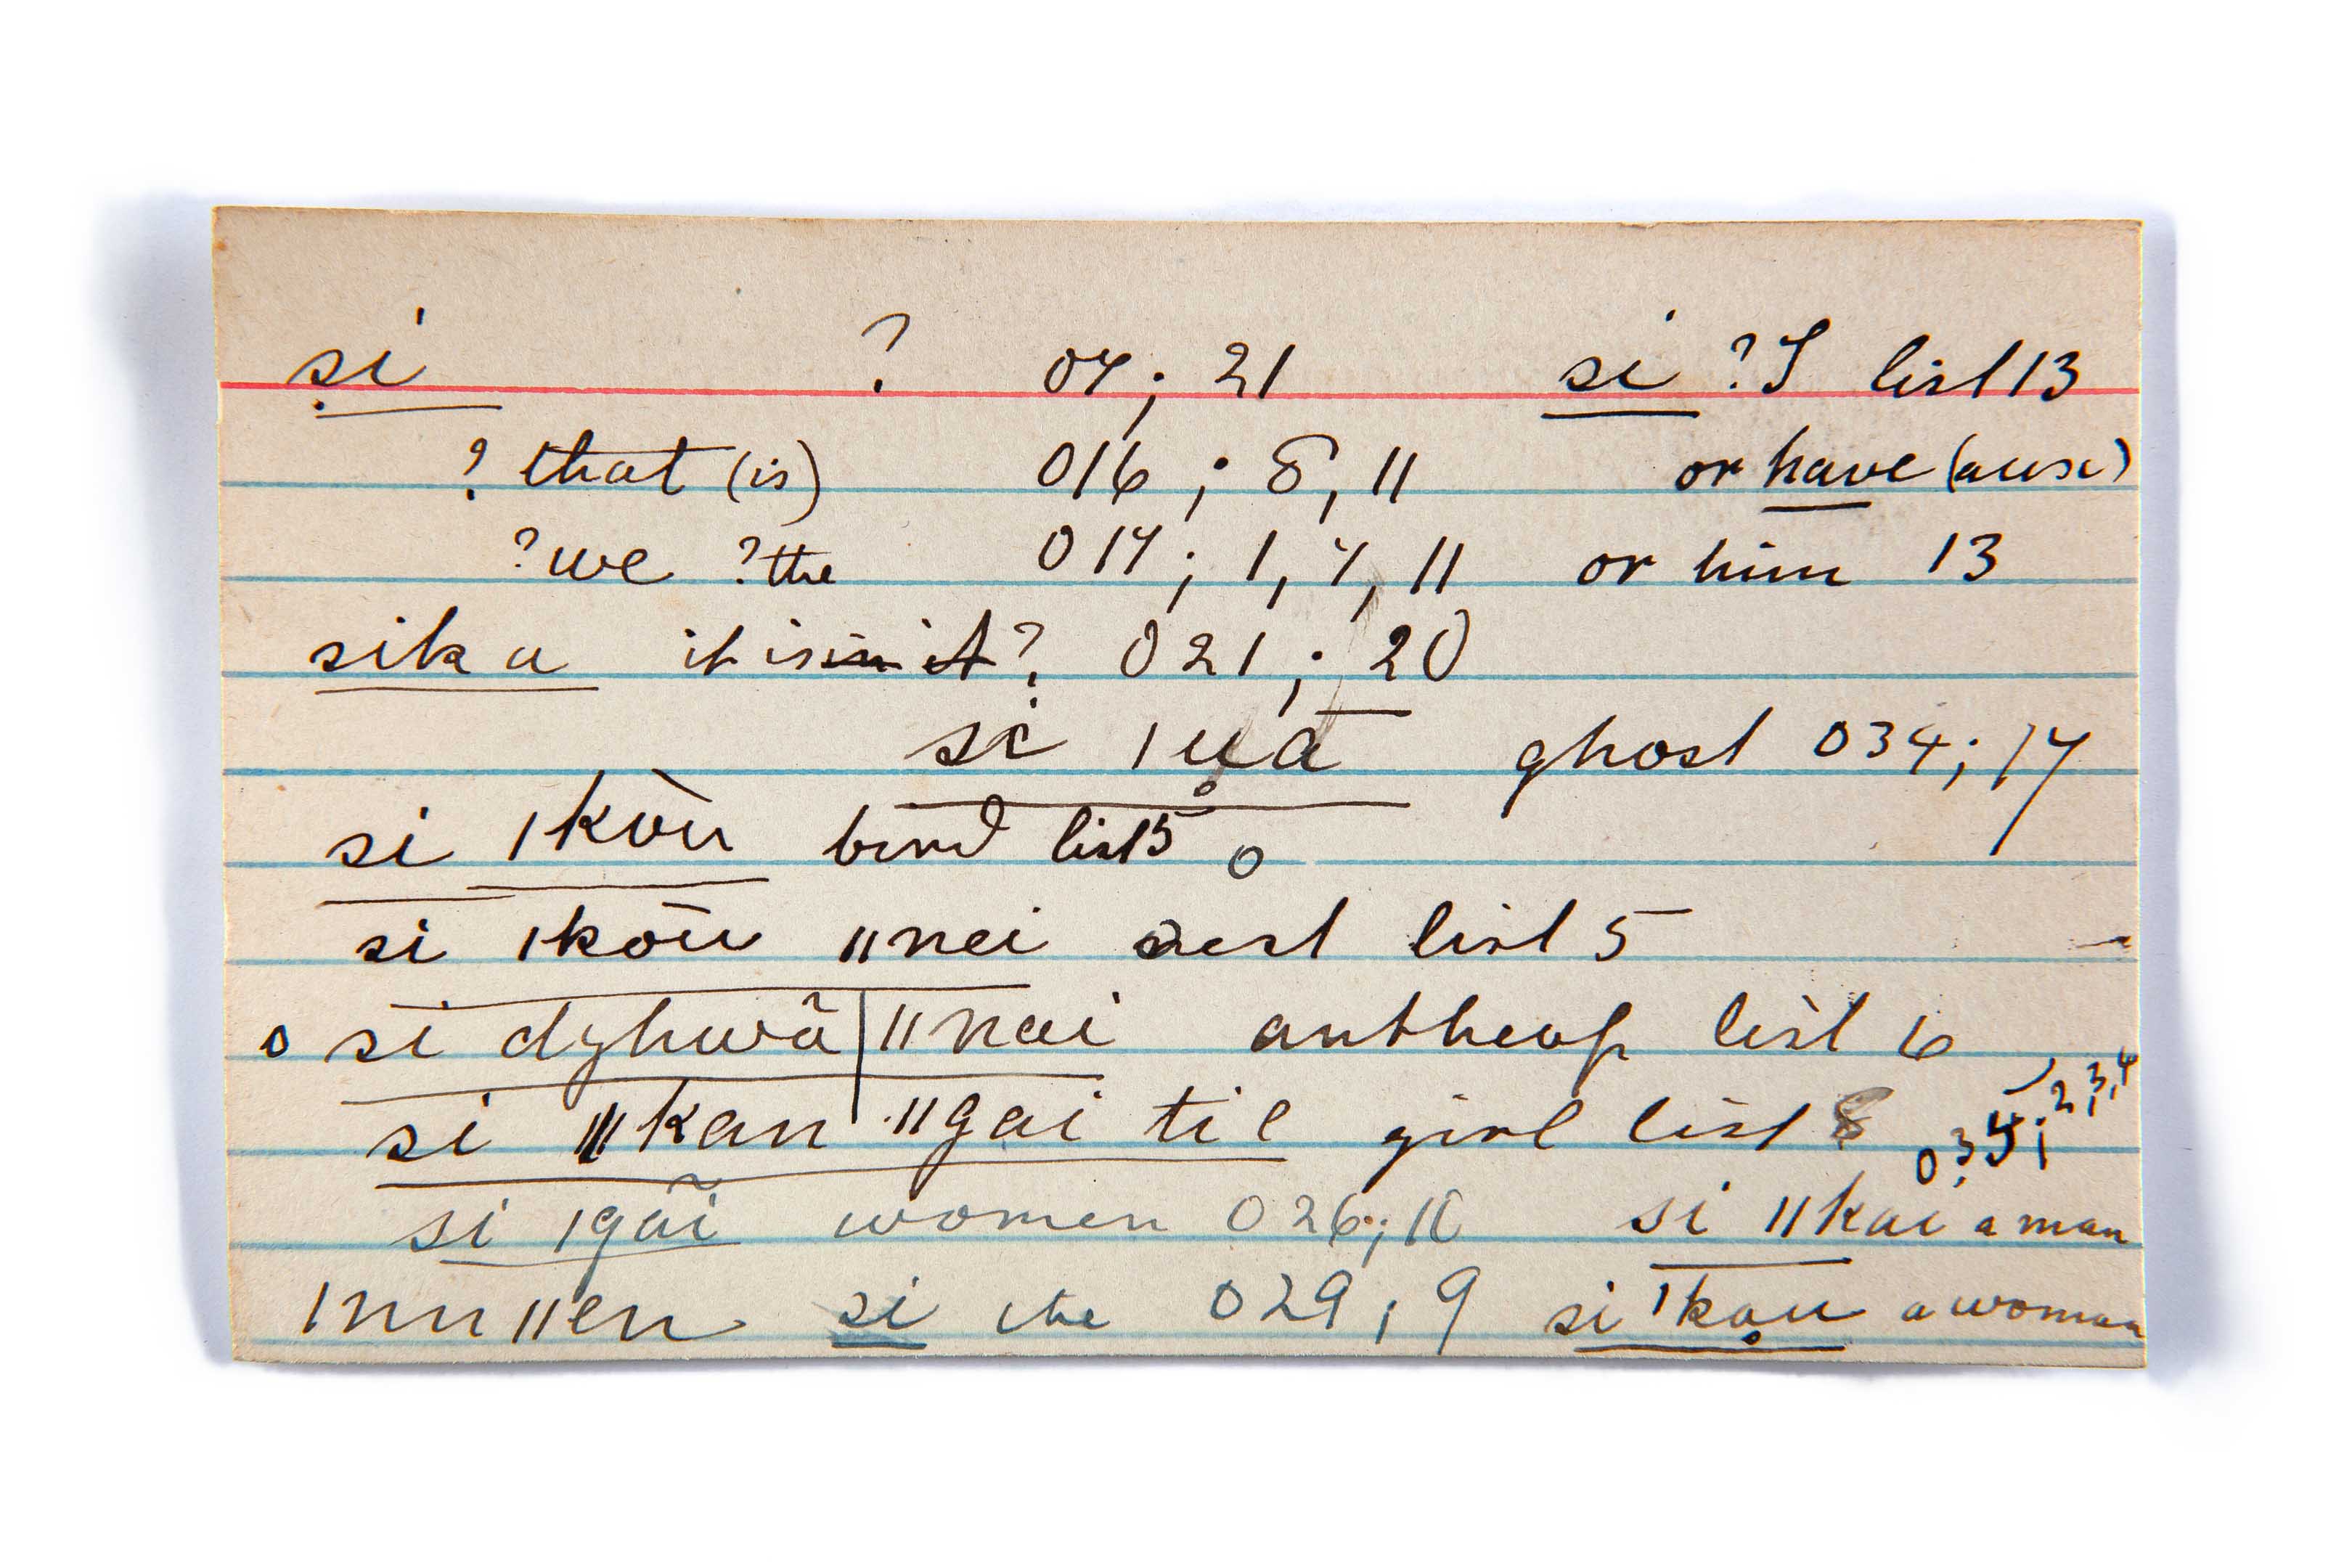 si ? 07; 21 si ?I list 13
? that (is) 016; 8, 11 or have (aux)
?we ?the 017; 1, 7, 11 or him 13
sika it is in it? 021; 20
si |ṵa ghost 034; 17
si |kòu bird list 5 o
si |kōu ||nei nest list 5
o si dyhwā | ||nai antheap list 6
si ||kan ||gai til girl list 8 034; 2, 3, 4
si |gãi women 026; 10 si ||kai a man
|nu||en si the 029, 9 si |kou a woman